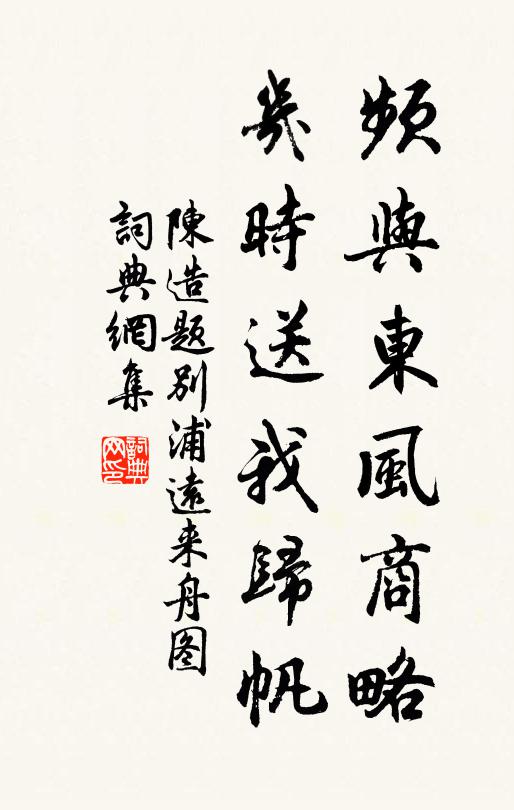 頻與東風商略
幾時送我歸帆
陳造題别浦遠来舟图
詞典網集
詞典网印